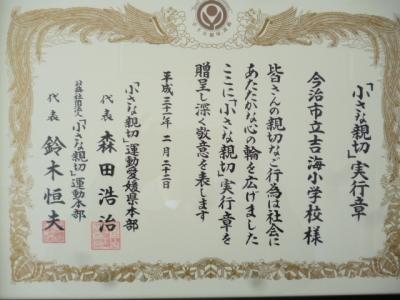 「小さな親切」実行章
今治市立吉海小学校様
皆さんの親切なご行為は社会に
あたたかな心の輪を広げました
ここに「小さな親切」実行章を
贈呈し深く敬意を表します
平成三十一年二月二十二日
「小さな親切」運動愛媛県本部
代表 森田浩治
公益社団法人「小さな親切」運動本部
代表 鈴木恒夫